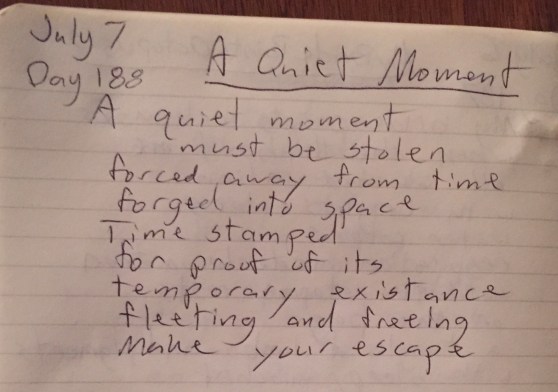 July 7
Day 188
A Quiet Moment
A quiet moment
must be stolen
forced away from time
forged into space
Time stamped
for proof of its
temporary existance
fleeting and freeing
Make your escape